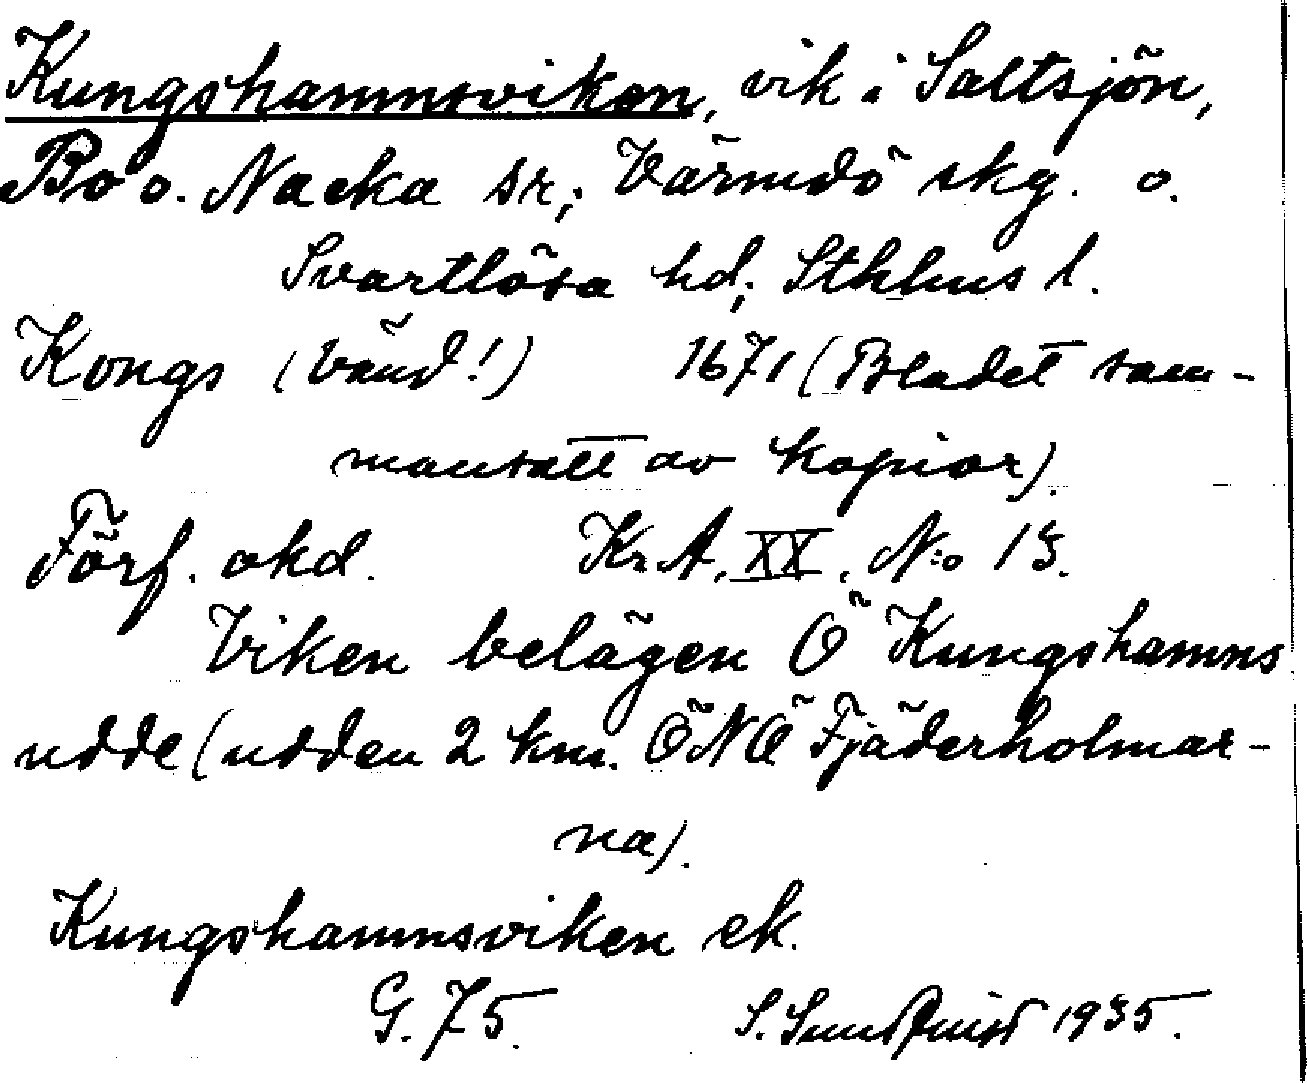 Kungshamnsviken, vik i Saltsjön,
Bo o. Nacka sr; Värmdö skg. o.
Svartlösa hd; Sthlms l.
Kongs (vänd!) 1671 (Bladet sam-
mansatt av kopior).
Förf. okd. Kr. A. XX. N:o 13.
Viken belägen Ö Kungshamns
udde (udden 2 km. ÖNÖ Fjäderholmar-
na).
Kungshamnsviken ek.
G. 75. S. Sundquist 1935.